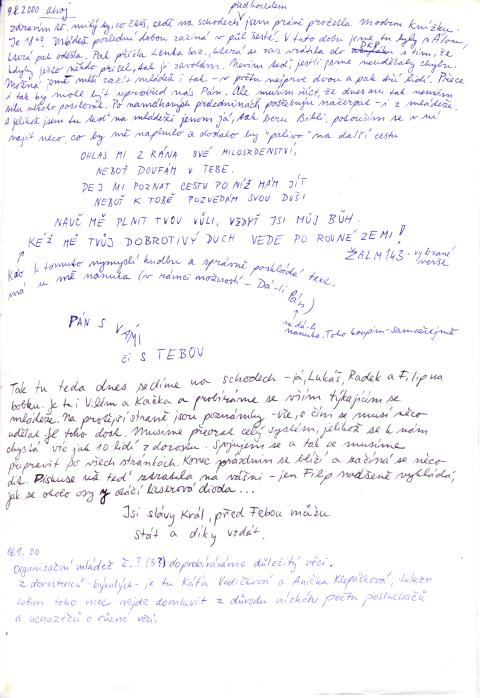 9.8.2000 ahoj
před kostelem
zdravím tě, milý čtenáři, sedě na schodech jsem právě pročetla modrou knížku.
Je 18:40. Mládež poslední dobou začíná v půl šesté. V tuto dobu jsme tu byly s Alčou,
která pak odešla. Pak přišla Lenka Saz., která se zas vrátila do DKP s tím, že
kdyby ještě někdo přišel, tak jí zavolám. Nevím teď, jestli jsme neudělaly chybu.
Možná jsme měli začít mládež i tak - v počtu nejprve dvou a pak tří lidí. Přece
i tak by mohl být uprostřed nás Pán. Ale musím říct, že dnes ani tak nemám
sílu někoho povzbudit. Po namáhavých prázdninách potřebuju načerpat - i z mládeže.
A jelikož jsem tu teď na mládeži jenom já, tak beru Bibli, pokouším se v ní
najít něco, co by mě naplnilo a dodalo by "palivo" na další cestu
OHLAS MI Z RÁNA SVÉ MILOSRDENSTVÍ,
NEBOŤ DOUFÁM V TEBE.
DEJ MI POZNAT CESTU PO NÍŽ MÁM JÍT
NEBOŤ K TOBĚ POZVEDÁM SVOU DUŠI
NAUČ MĚ PLNIT TVOU VŮLI, VŽDYŤ JSI MŮJ BŮH.
KÉŽ MĚ TVŮJ DOBROTIVÝ DUCH VEDE PO ROVNÉ ZEMI!
ŽALM 143 - vybrané verše
Kdo k tomuto vymyslí hudbu a správně poskládá text,
má u mě nanuka (v rámci možností - Dá-li Pán)
ne dá-li nanuka. Toho koupím - samozřejmě
PÁN S VÁMI
či S TEBOU
Tak tu teda dnes sedíme na schodech - já, Lukáš, Radek a Filip na
bobku. Je tu i Vilém a Kačka a probíráme se vším týkajícím se
mládeže. Na protější straně jsou poznámky - vše, s čím se musí něco
udělat. Je toho dost. Musíme předělat celý systém, jelikož se k nám
chystá víc jak 10 lidí z dorostu. Spojujem se a tak se musíme
připravit po všech stránkách. Konec prázdnin se blíží a začíná se něco
dít. Diskuse už teď ztratila na vášni - jen Filip nadšeně vykládá,
jak se okolo osy y otáčí laserová dioda...
Jsi slávy Král, před Tebou můžu
stát a díky vzdát.
16.9.00
Organizační mládež č.? (33) doprobíráváme důležitý věci.
Z dorostenců - bývalých - je tu Káťa Vodičková a Anička Klepáčková,
zatím toho moc nejde domluvit z důvodu nízkého počtu posluchačů
a ukazečů o různé věci.